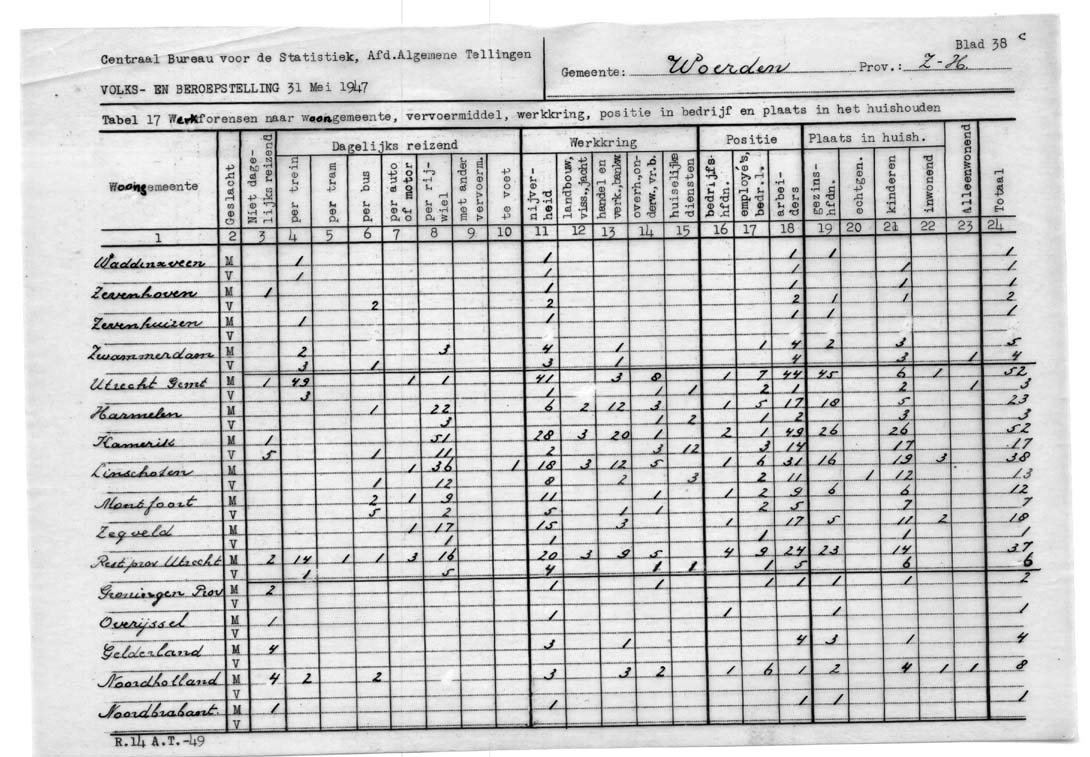 Blad 38 c
Centraal Bureau voor de Statistiek, Afd.Algemene Tellingen
Gemeente: Woerden Prov.: Z-H.
VOLKS- EN BEROEPSTELLING 31 Mei 1947
Tabel 17 Werkforensen naar woongemeente, vervoermiddel, werkkring, positie in bedrijf en plaats in het huishouden
Woongemeente Geslacht Niet dagelijks reizend Dagelijks reizend Werkkring Positie Plaats in huish. Alleenwonend Totaal
per trein per tram per bus per auto of motor per rijwiel met ander vervoerm. te voet nijverheid landbouw, viss.,jacht handel en verk.,bankw. overh.,onderw.,vr.b. huiselijke diensten bedrijfshfdn. employé's, bedr.l. arbeiders gezinshfdn. echtgen. kinderen inwonend
1 2 3 4 5 6 7 8 9 10 11 12 13 14 15 16 17 18 19 20 21 22 23 24
Waddinxveen M 1 1 1 1 1
V 1 1 1 1 1
Zevenhoven M 1 1 1 1 1
V 2 2 2 1 1 2
Zevenhuizen M 1 1 1 1 1
V
Zwammerdam M 2 3 4 1 1 4 2 3 5
V 3 1 3 1 4 3 1 4
Utrecht Gemt M 1 49 1 1 41 3 8 1 7 44 45 6 1 52
V 3 1 1 1 2 1 2 1 3
Harmelen M 1 22 6 2 12 3 1 5 17 18 5 23
V 3 1 2 1 2 3 3
Kamerik M 1 51 28 3 20 1 2 1 49 26 26 52
V 5 1 11 2 3 12 3 14 17 17
Linschoten M 1 36 1 18 3 12 5 1 6 31 16 19 3 38
V 1 12 8 2 3 2 11 1 12 13
Montfoort M 2 1 9 11 1 1 2 9 6 6 12
V 5 2 5 1 1 2 5 7 7
Zegveld M 1 17 15 3 1 17 5 11 2 18
V 1 1 1 1 1
Rest prov Utrecht M 2 14 1 1 3 16 20 3 9 5 4 9 24 23 14 37
V 1 5 4 1 1 1 5 6 6
Groningen Prov M 2 1 1 1 1 1 1 2
V
Overijssel M 1 1 1 1 1
V
Gelderland M 4 3 1 4 3 1 4
V
Noordholland M 4 2 2 3 3 2 1 6 1 2 4 1 1 8
V
Noordbrabant. M 1 1 1 1 1
V
R.14 A.T.-49